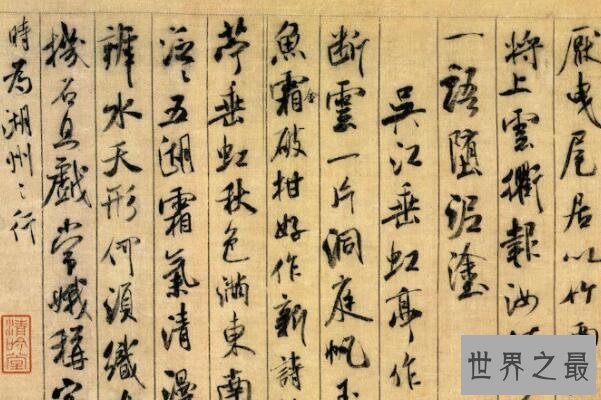 厭曳尾居以竹兩
將上雲衢報汝
一語墮泥塗
吳江垂虹亭作
斷雲一片洞庭帆玉
魚霜金破柑好作新詩
苧垂虹秋色滿東南
泛〻五湖霜氣清漫
辨水天形何須織
機石且戲常娥稱
時為湖州之行
清吟堂
世界之最